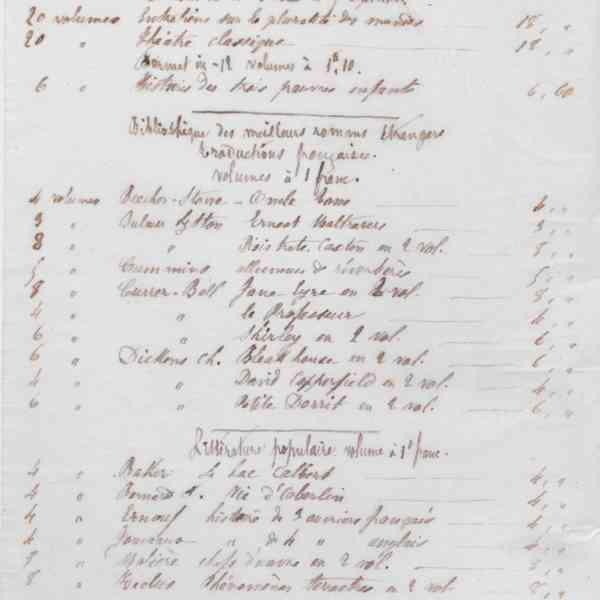 20 volumes Entretiens sur la pluralité des mondes 18 " "
20 " Théatre classique 18 " "
Format in-12 volumes à 1f,10.
6 " Histoire des trois pauvres enfants 6,60
Bibliothèque des meilleurs romans étrangers
traductions françaises.
volumes à 1 franc.
4 volumes Beecher-Stowe - Oncle Tom 4 " "
3 " Bulwer Lytton Ernest Maltravers 3 " "
8 " " Pisistrate Caxton en 2 vol. 8 " "
5 " Cummins allumeur de réverbères 5 " "
8 " Currer-Bell Jane Eyre en 2 vol. 8 " "
4 " " le Professeur 4 " "
6 " " Shirley en 2 vol. 6 " "
6 " Dickens Ch. Bleak house en 2 vol. 6 " "
4 " " David Copperfield en 2 vol. 4 " "
6 " " Petite Dorrit en 2 vol. 6 " "
Littérature populaire volume à 1f franc.
4 " Baker le lac Albert 4 " "
4 " Bernard F. Vie d'Oberlin 4 " "
4 " Ernouf histoire de 3 ouvriers français 4 " "
4 " " de 4 " anglais 4 " "
8 " Molière chefs d'œuvre en 2 vol. 8 " "
8 " Reclus Phénomènes terrestres en 2 vol 8 " "